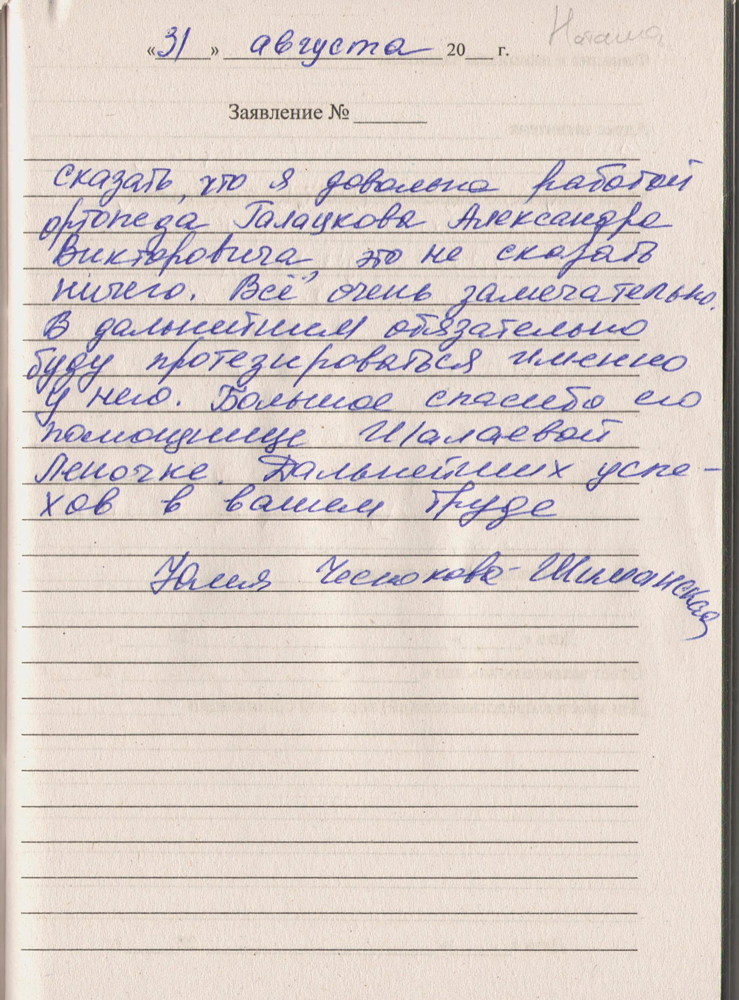 Наташа
«31» августа 20__ г.
Заявление №______
сказать, что я довольна работой
ортопеда Галацкова Александра
Викторовича, это не сказать
ничего. Всё очень замечательно.
В дальнейшем обязательно
буду протезироваться именно
у него. Большое спасибо его
помощнице Шалаевой
Леночке. Дальнейших успе-
хов в вашем труде
Юлия Чеснокова-Шиманская